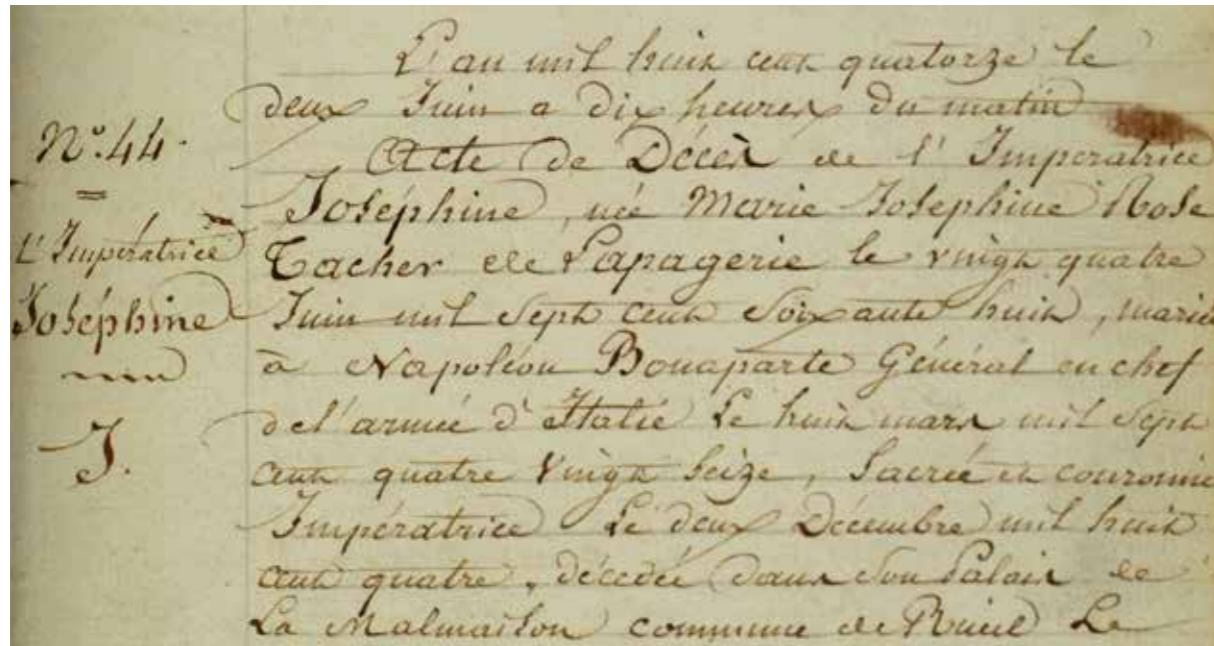 N.º 44.
L'Impératrice
Joséphine
J.
L'an mil huit cent quatorze le
deux Juin a dix heures du matin
Acte de Décès de l'Imperatrice
Joséphine, née Marie Josephine Rose
Tacher de Lapagerie le vingt quatre
Juin mil sept cent soixante huit, marie
à Napoléon Bonaparte Général en chef
de l'armée d'Italie Le huit mars mil sept
cent quatre vingt seize, Sacrée et couronne
Impératrice Le deux Décembre mil huit
cent quatre, décedée dans son Palais de
La Malmaison commune de Rueil Le